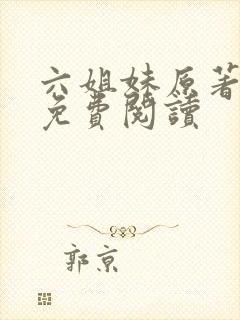 六姐妹原著
免費閱讀
郭京